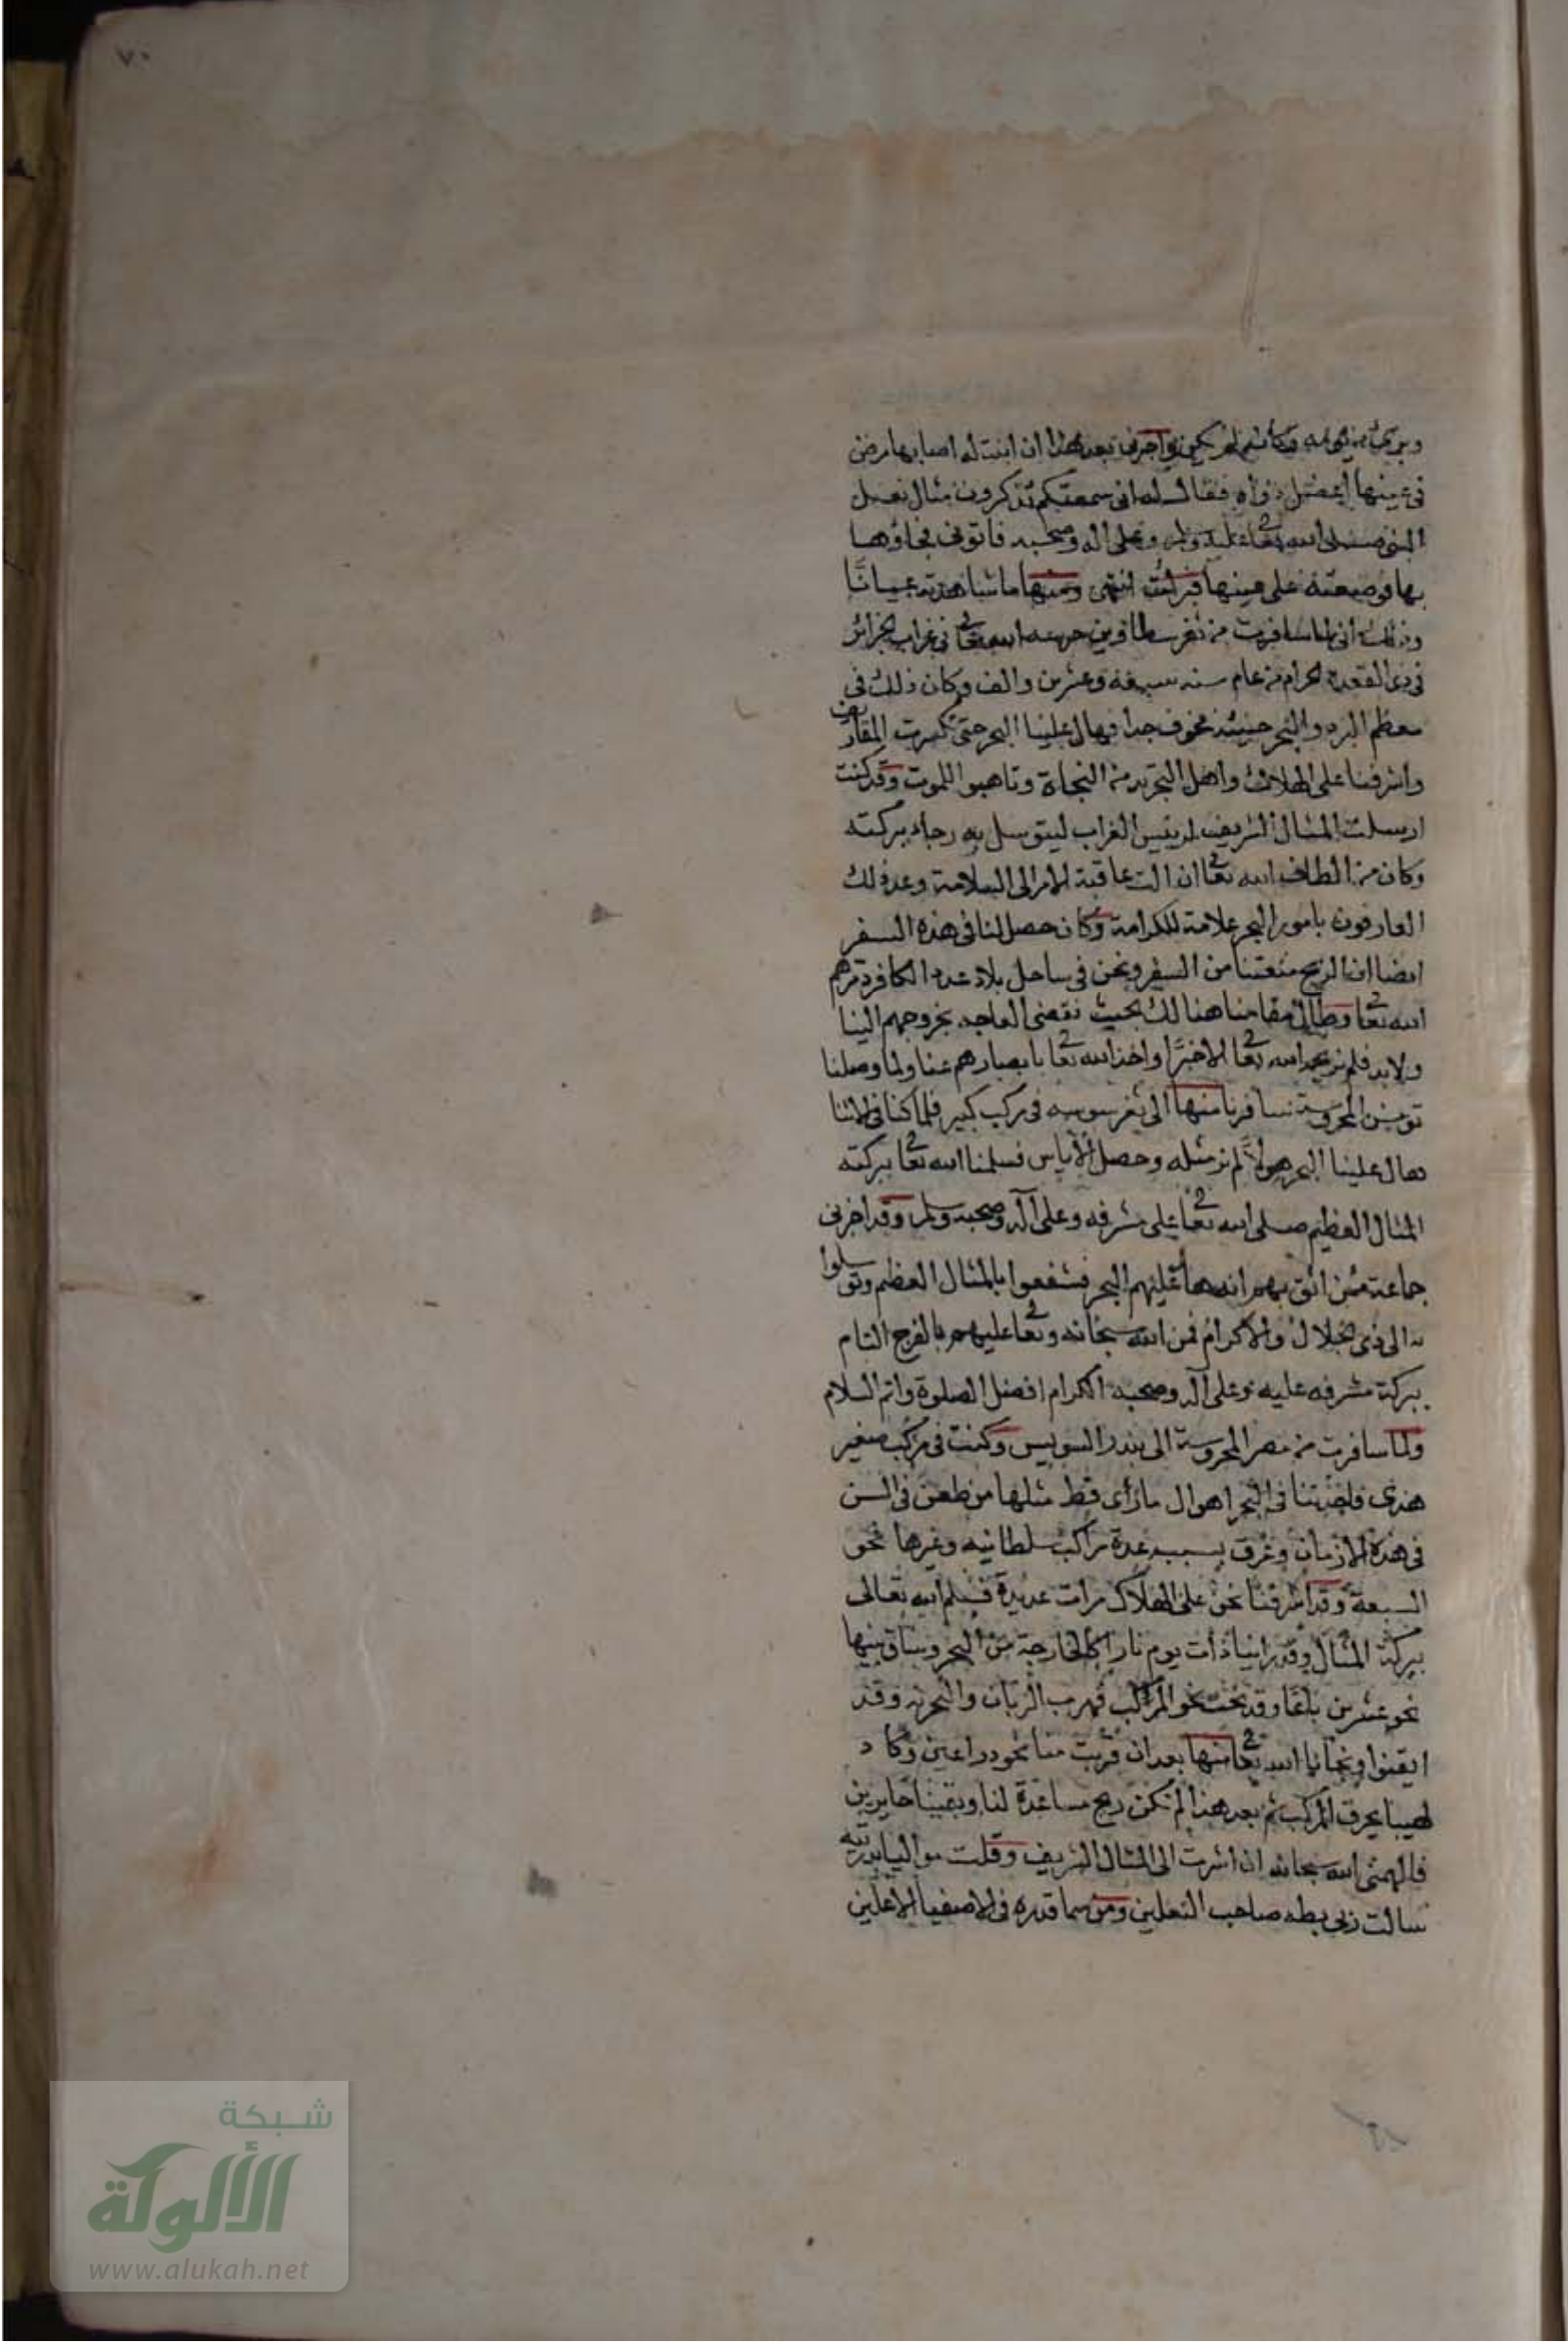 ٧٠
واخبرني بعد هذا ان ابنت له اصابها مرض
في عينها اعضل دواه فقال لها اني سمعتكم تذكرون مثال نعل
النبي صلى الله تعا عليه وسلم وعلى اله وصحبه فاتوني فجاؤها
بها فوضعته على عينها فبرأت انتهى ومنها ما شاهدته عيانًا
وذلك اني لما سافرت من ثغر تطاوين حرسه الله تعا في غراب الجزائر
في ذي القعدة الحرام من عام سنه سبعة وعشرين والف وكان ذلك في
معظم البرد والبحر حينئذ مخوف جدا فهال علينا البحر حتى تكسرت المقاذيف
واشرفنا على الهلاك وايس اهل التجربه من النجاة وتاهبوا للموت وقد كنت
ارسلت المثال الشريف لرئيس الغراب ليتوسل به رجاء بركته
وكان من الطاف الله تعا ان الت عاقبة الامر الى السلامة وعد ذلك
العارفون بامور البحر علامة للكرامة وكان حصل لنا في هذه السفر
ايضا ان الريح منعتنا من السفر ونحن في ساحل بلاد عدد الكافر دمرهم
الله تعا وطال مقامنا هنالك بحيث تقضى العاجه بخروجهم الينا
ولابد فلم نر بحمد الله تعا الا خيرًا واخذ الله تعا بابصارهم عنا ولما وصلنا
تونس المحروسة سافرنا منها الى ثغر سوسه في مركب كبير فلما كنا في الاثنا
هال علينا البحر هولاً لم نر مثله وحصل الاياس فسلمنا الله تعا ببركته
المثال العظيم صلى الله تعا على مشرفه وعلى آله وصحبه وسلم وقد اخبرني
جماعة ممن اثق بهم انه هال عليهم البحر فتشفعوا بالمثال العظيم وتوسلوا
به الى ذي الجلال والاكرام فمن الله سبحانه وتعا عليهم بالفرج التام
ببركة مشرفه عليه وعلى آله وصحبه الكرام افضل الصلوة واتم السلام
ولما سافرت من مصر المحروسة الى بندر السويس وكنت في مركب صغير
هندي فاخذتنا في البحر اهوال ما رأى قط مثلها من طعن في السن
في هذه الازمان وغرق بسببه عدة مراكب سلطانيه وغيرها نحو
السبعة وقد اشرفنا نحن على الهلاك مرات عديدة فسلم الله تعالى
ببركة المثال وقد راينا ذات يوم نارا كالخارجة من البحر وبيننا وبينها
نحو عشرين باعًا وقد نحت نحو المركب فهرب الربان والبحريه وقد
ايقنوا ونجانا الله تعا منها بعد ان قربت منا نحو ذراعين وكاد
لهيبها يحرق المركب ثم بعد هذا لم تكن ريح مساعدة لنا وبقينا حايرين
فالهمني الله سبحانه ان اشرت الى المثال الشريف وقلت مواليا بديه
سالت ربي بطه صاحب النعلين ومن سما قدره في الاصفيا الاعلين
شبكة
الألوكة
www.alukah.net